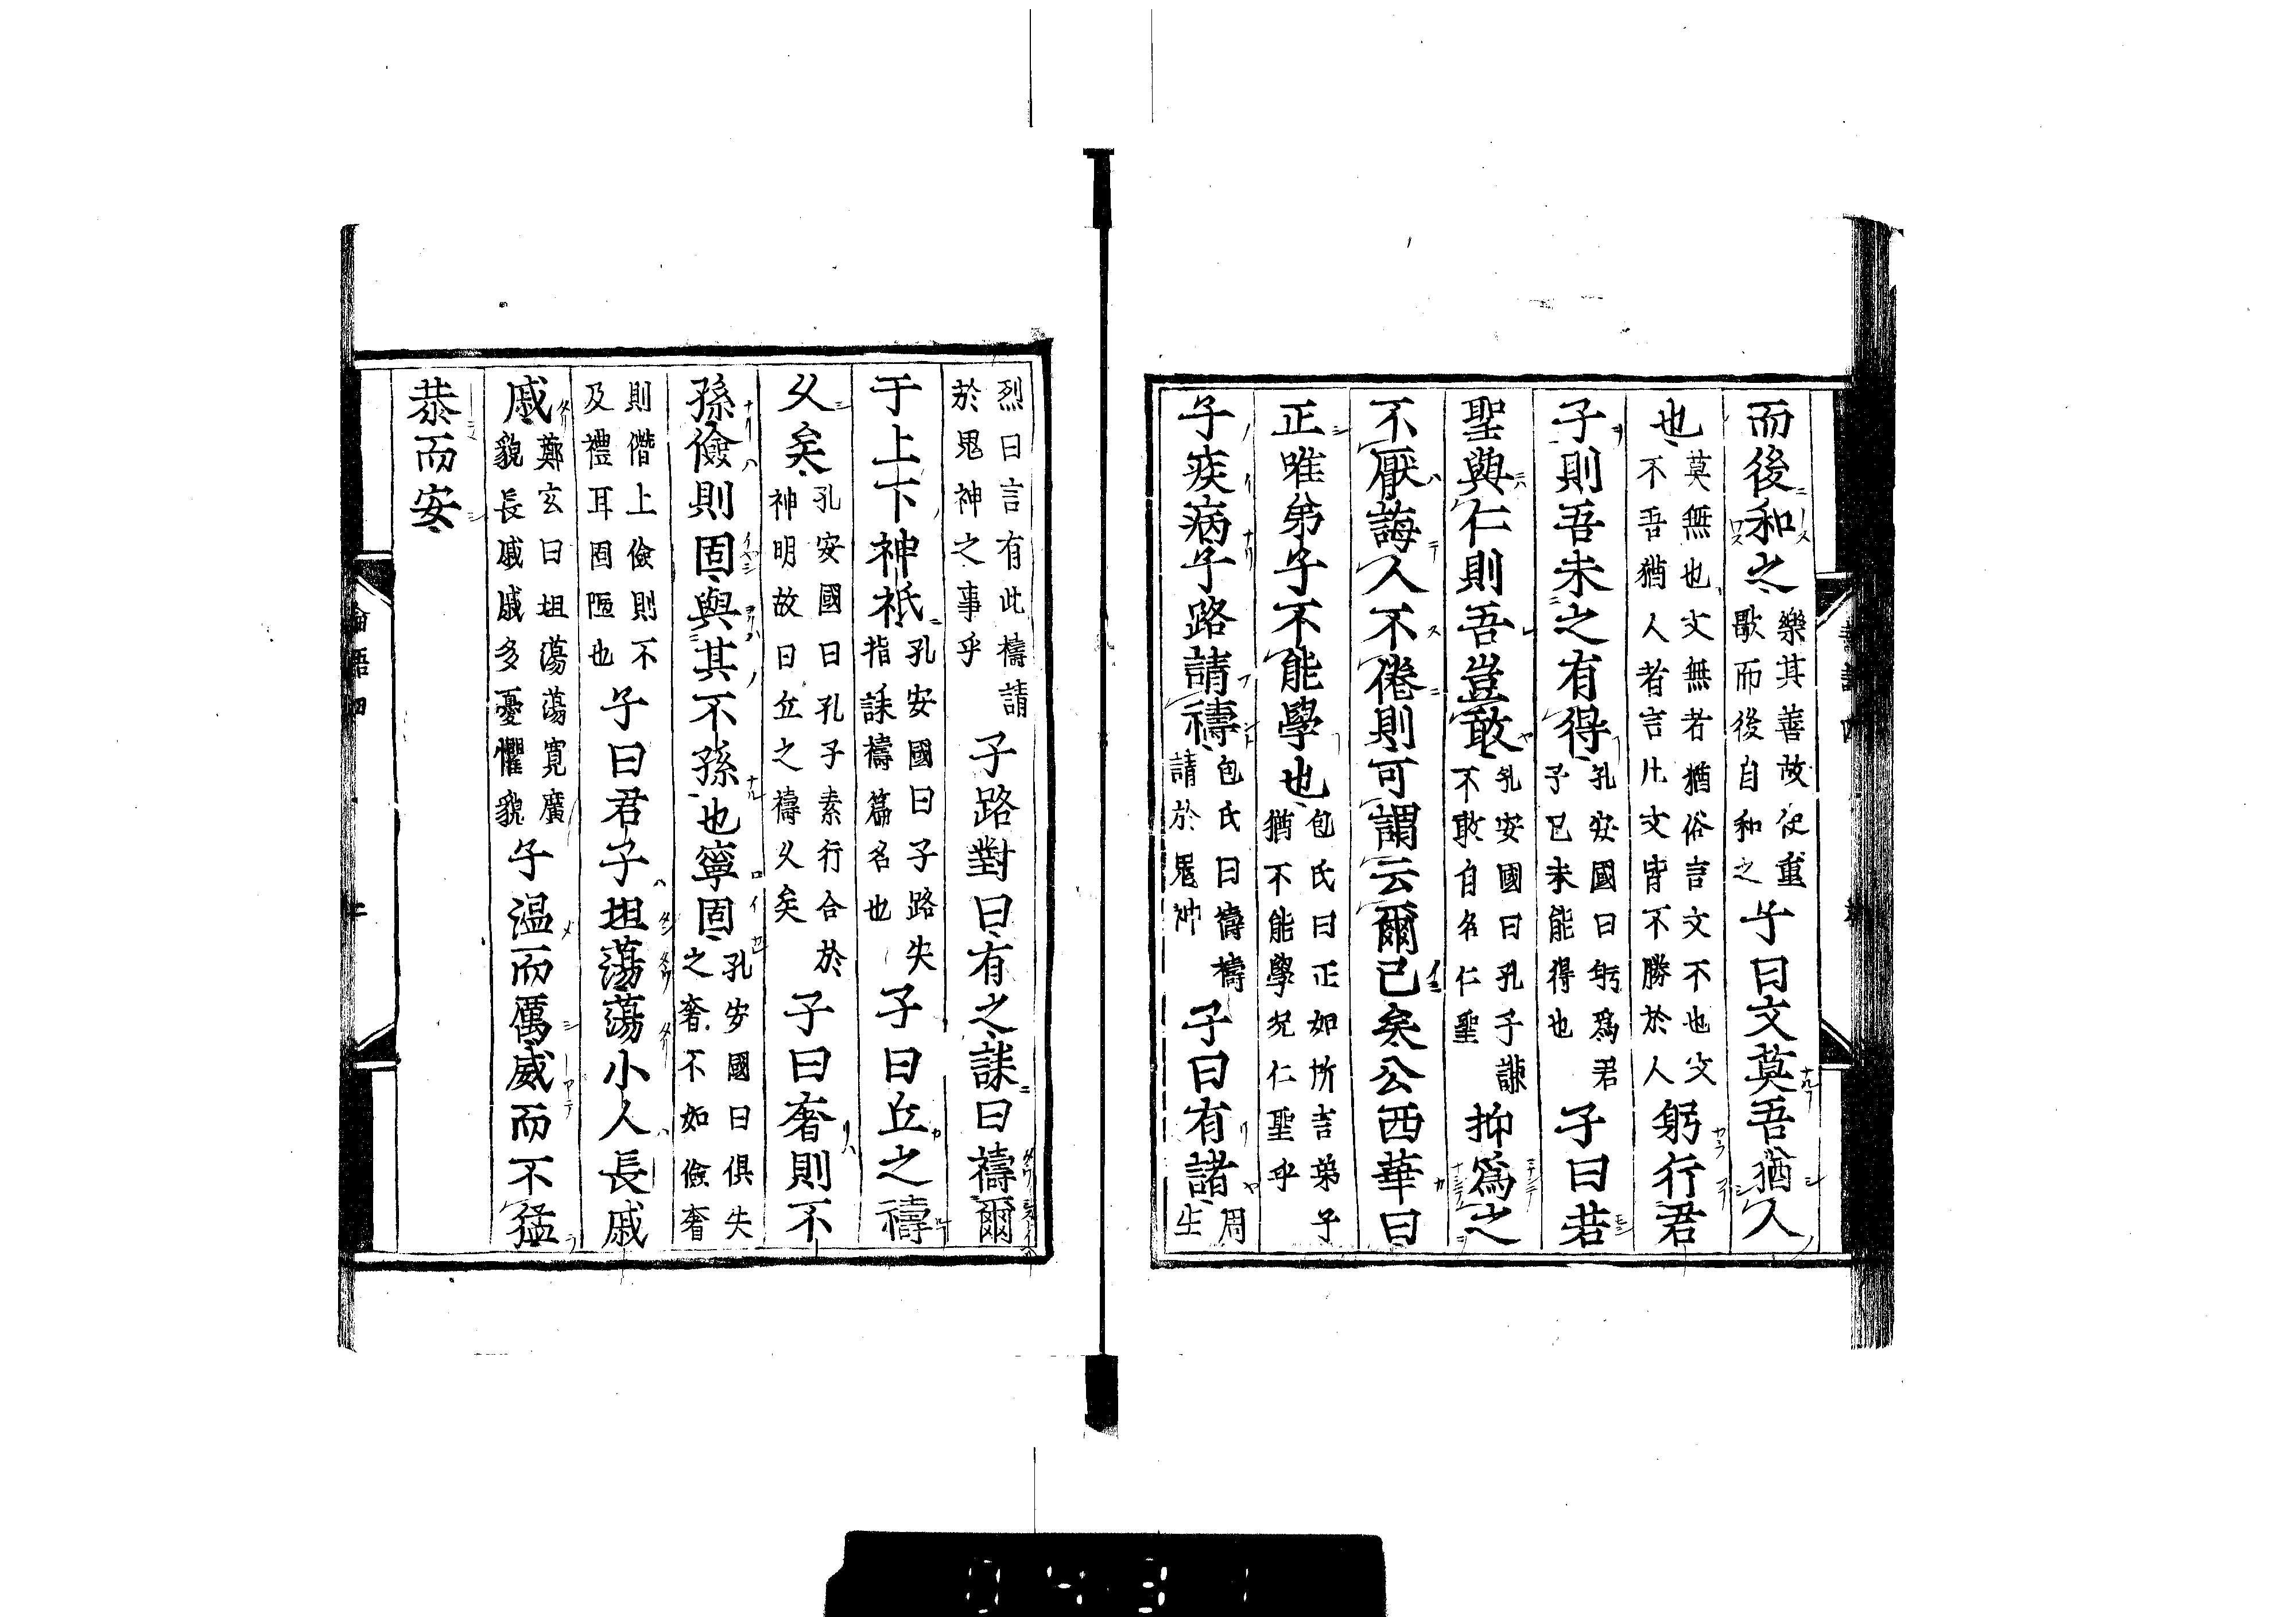 而後和之樂其善故使重歌而後自和之子曰文莫吾猶人
也莫無也文無者猶俗言文不也文不吾猶人者言凡文皆不勝於人躬行君
子則吾未之有得孔安國曰躬爲君子己未能得也子曰若
聖與仁則吾豈敢孔安國曰孔子謙不敢自名仁聖抑爲之
不厭誨人不倦則可謂云爾已矣公西華曰
正唯弟子不能學也包氏曰正如所言弟子猶不能學况仁聖乎
子疾病子路請禱包氏曰禱禱請於鬼神子曰有諸周生
烈曰言有此禱請於鬼神之事乎子路對曰有之誄曰禱爾
于上下神祇孔安國曰子路失指誄禱篇名也子曰丘之禱
久矣孔安國曰孔子素行合於神明故曰丘之禱久矣子曰奢則不
孫儉則固與其不孫也寧固孔安國曰俱失之奢不如儉奢
則僭上儉則不及禮耳固陋也子曰君子坦蕩蕩小人長戚
戚鄭玄曰坦蕩蕩寬廣貌長戚戚多憂懼貌子温而厲威而不猛
恭而安
論語四
0431